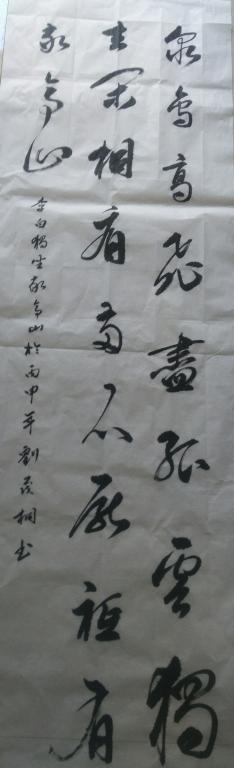 眾鳥高飛盡孤雲獨
去閑相看兩不厭祗有
敬亭山
李白獨坐敬亭山於丙申年劉茂桐书